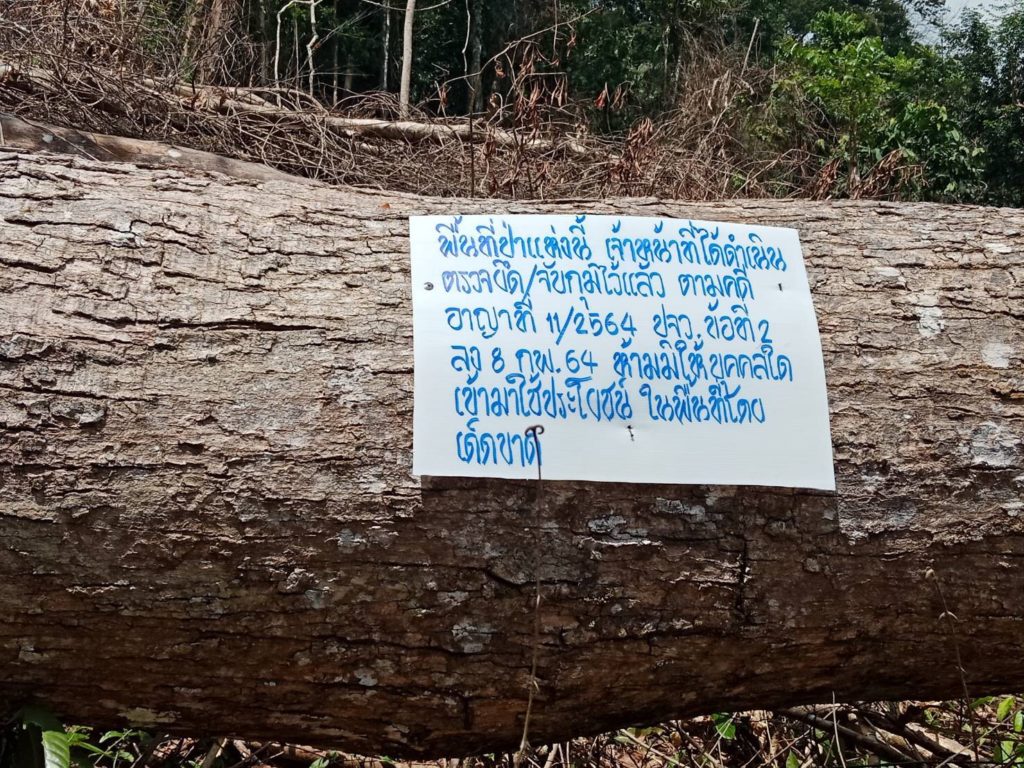 พื้นที่ป่าแห่งนี้ เจ้าหน้าที่ได้ดำเนิน
ตรวจยึด/จับกุมไว้แล้ว ตามคดี
อาญาที่ 11/2564 ปจว. ข้อที่ 2
ลง 8 กพ. 64 ห้ามมิให้บุคคลใด
เข้ามาใช้ประโยชน์ ในพื้นที่โดย
เด็ดขาด